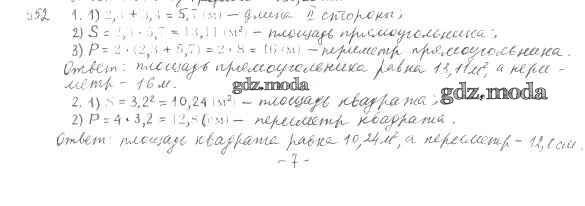 352 1. 1) 2,3 + 3,4 = 5,7 (м) – длина II стороны;
2) S = 2,3 · 5,7 = 13,11 (м²) – площадь прямоугольника;
3) P = 2 · (2,3 + 5,7) = 2 · 8 = 16 (м) – периметр прямоугольника.
Ответ: площадь прямоугольника равна 13,11 м², а пери-
метр – 16 м.
gdz.moda
2. 1) S = 3,2² = 10,24 (м²) – площадь квадрата;
gdz.moda
2) P = 4 · 3,2 = 12,8 (см) – периметр квадрата.
Ответ: площадь квадрата равна 10,24 м², а периметр – 12,8 см.
– 7 –